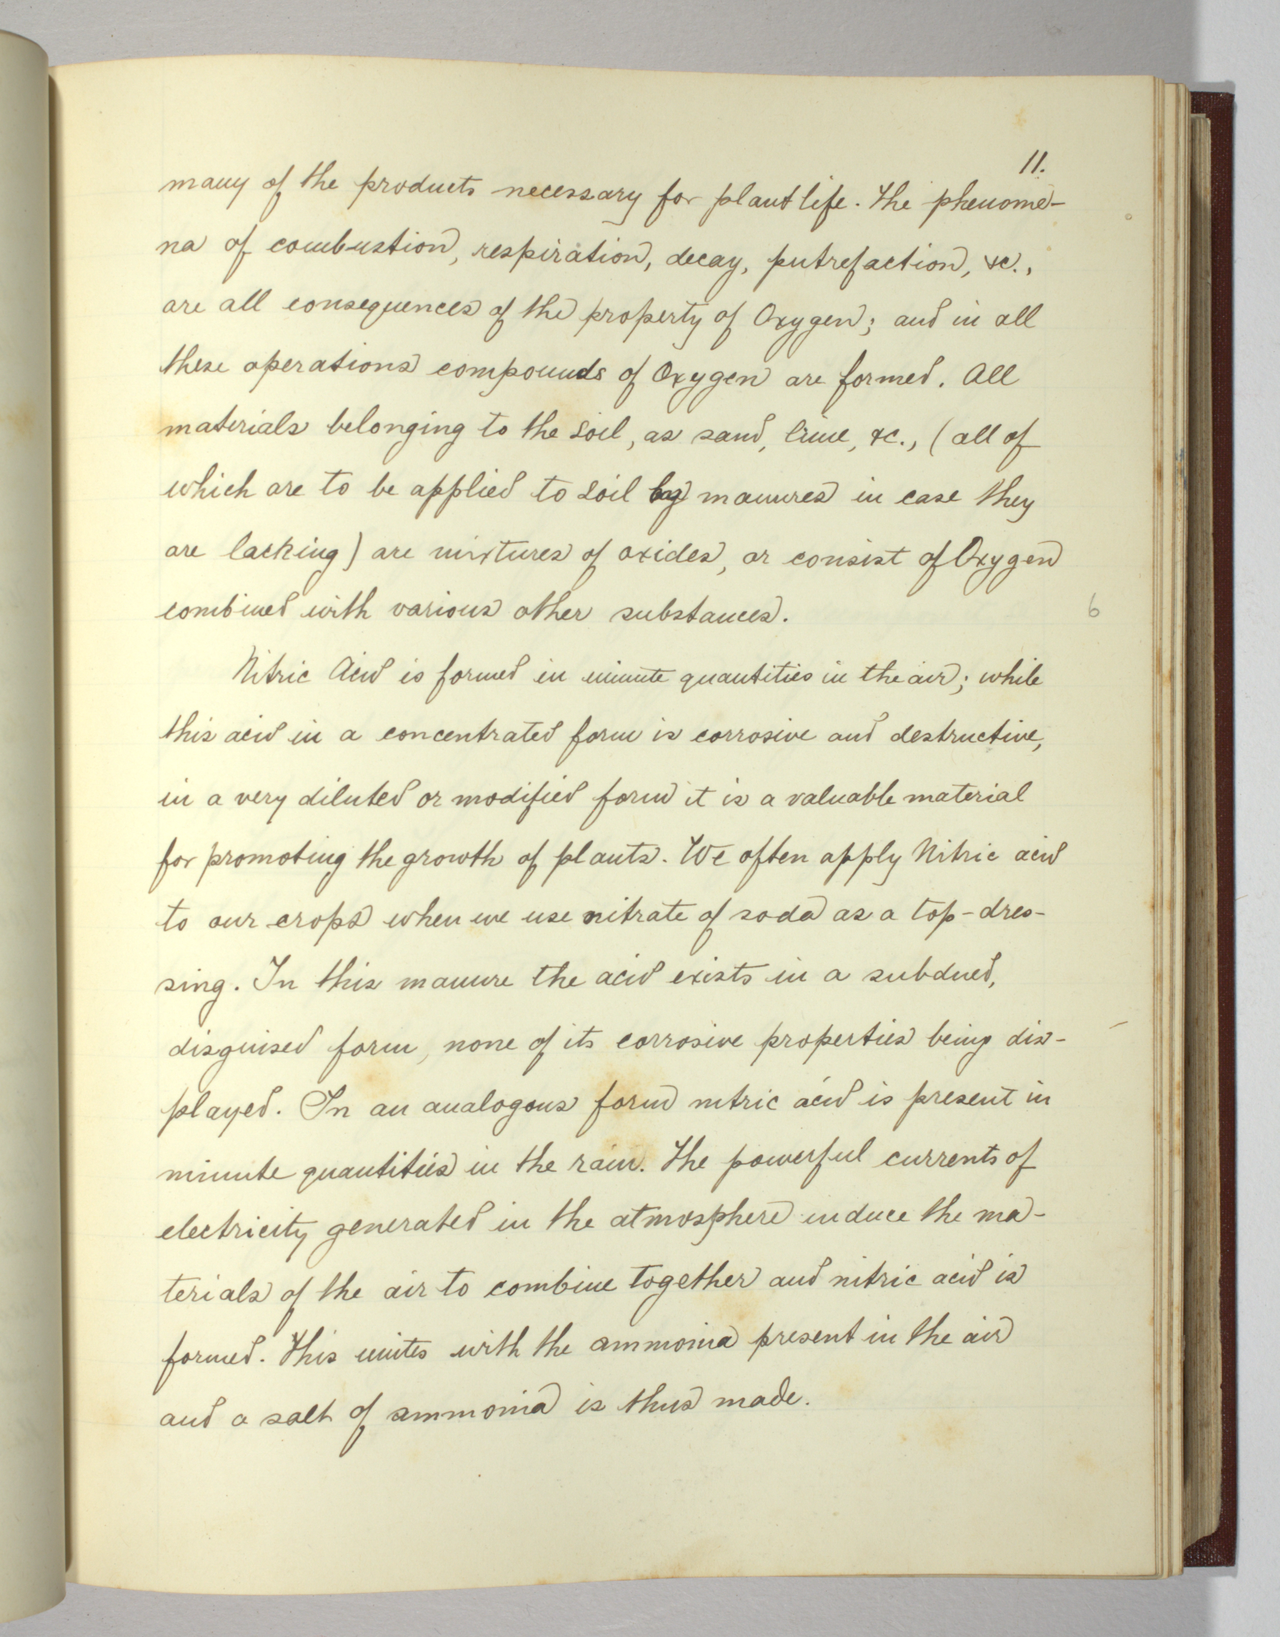 11.
many of the products necessary for plant life. The phenome-
na of combustion, respiration, decay, putrefaction, &c.,
are all consequences of the property of Oxygen; and in all
these operations compounds of Oxygen are formed. All
materials belonging to the soil, as sand, lime, &c., (all of
which are to be applied to soil by manures in case they
are lacking) are mixtures of oxides, or consist of Oxygen
combined with various other substances.
6
Nitric Acid is formed in minute quantities in the air; while
this acid in a concentrated form is corrosive and destructive,
in a very diluted or modified form it is a valuable material
for promoting the growth of plants. We often apply Nitric acid
to our crops when we use nitrate of soda as a top-dres-
sing. In this manure the acid exists in a subdued,
disguised form, none of its corrosive properties being dis-
played. In an analogous form nitric acid is present in
minute quantities in the rain. The powerful currents of
electricity generated in the atmosphere induce the ma-
terials of the air to combine together and nitric acid is
formed. This unites with the ammonia present in the air
and a salt of ammonia is thus made.